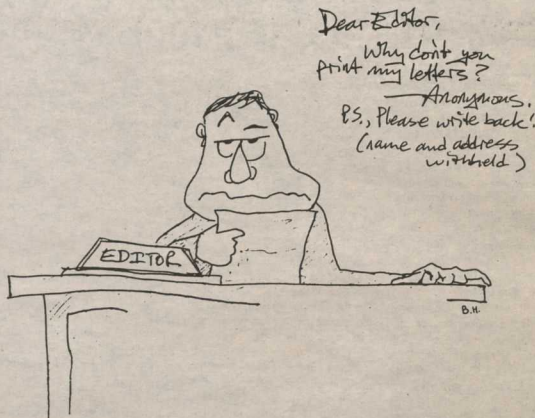 Dear Editor,
Why don't you
print my letters?
—Anonymous.
P.S., Please write back!
(name and address
withheld)
EDITOR
B.H.